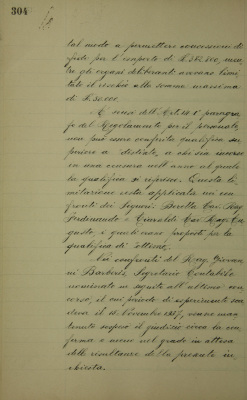 304
tal modo a permettere concessioni di
fidi per l'importo di L. 382.500, men-
tre gli organi deliberanti avevano limi-
tato il rischio alla somma massima
di L. 50.000.
A' sensi dell'Art. 14 1° paragra-
fo del Regolamento per il personale
non può essere conferita qualifica su-
periore a "distinto" a chi sia incorso
in una censura nell'anno al quale
la qualifica si riferisce. Questa li-
mitazione resta applicata nei con-
fronti dei Signori: Beretta Cav. Rag.
Ferdinando e Cav. Rag. Au-
gusto, i quali erano proposti per la
qualifica di "ottimo".
Nei confronti del Rag. Giovan-
ni Barberis, Segretario Contabile
nominato in seguito all'ultimo con-
corso, il cui periodo di esperimento sca-
deva il 16 Novembre 1937, venne man-
tenuto sospeso il giudizio circa la con-
ferma o meno nel grado in attesa
delle risultanze della presente in-
chiesta.